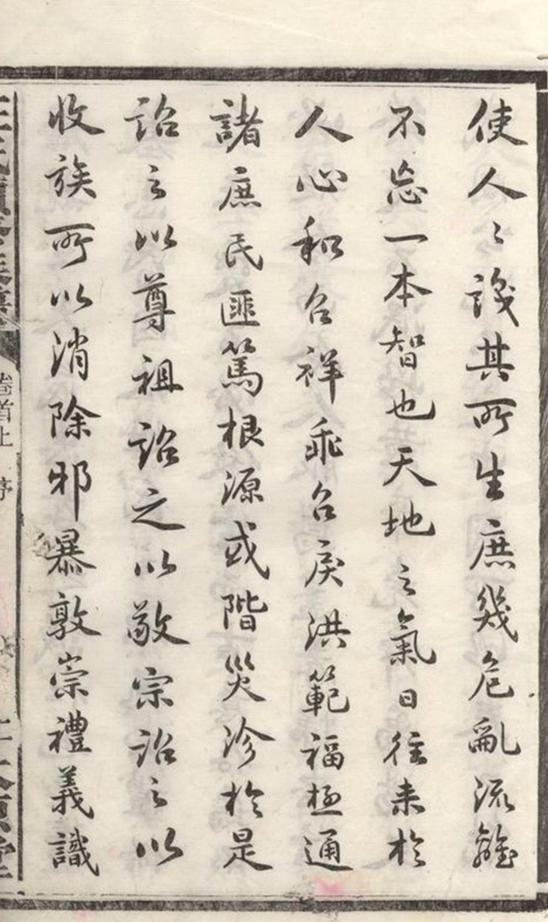 使人々識其所生庶幾危亂流離
不忘一本智也天地之氣日往来於
人心和召祥乖召戾洪範福極通
諸庶民匪篤根源或階災沴於是
詔之以尊祖詔之以敬宗詔之以
收族所以消除邪暴敦崇禮義識
卷首上 序